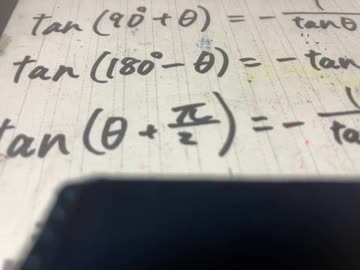 tan (90° + θ) = - 1/tanθ
tan (180° - θ) = - tan
tan (θ + π/2) = - 1/ta